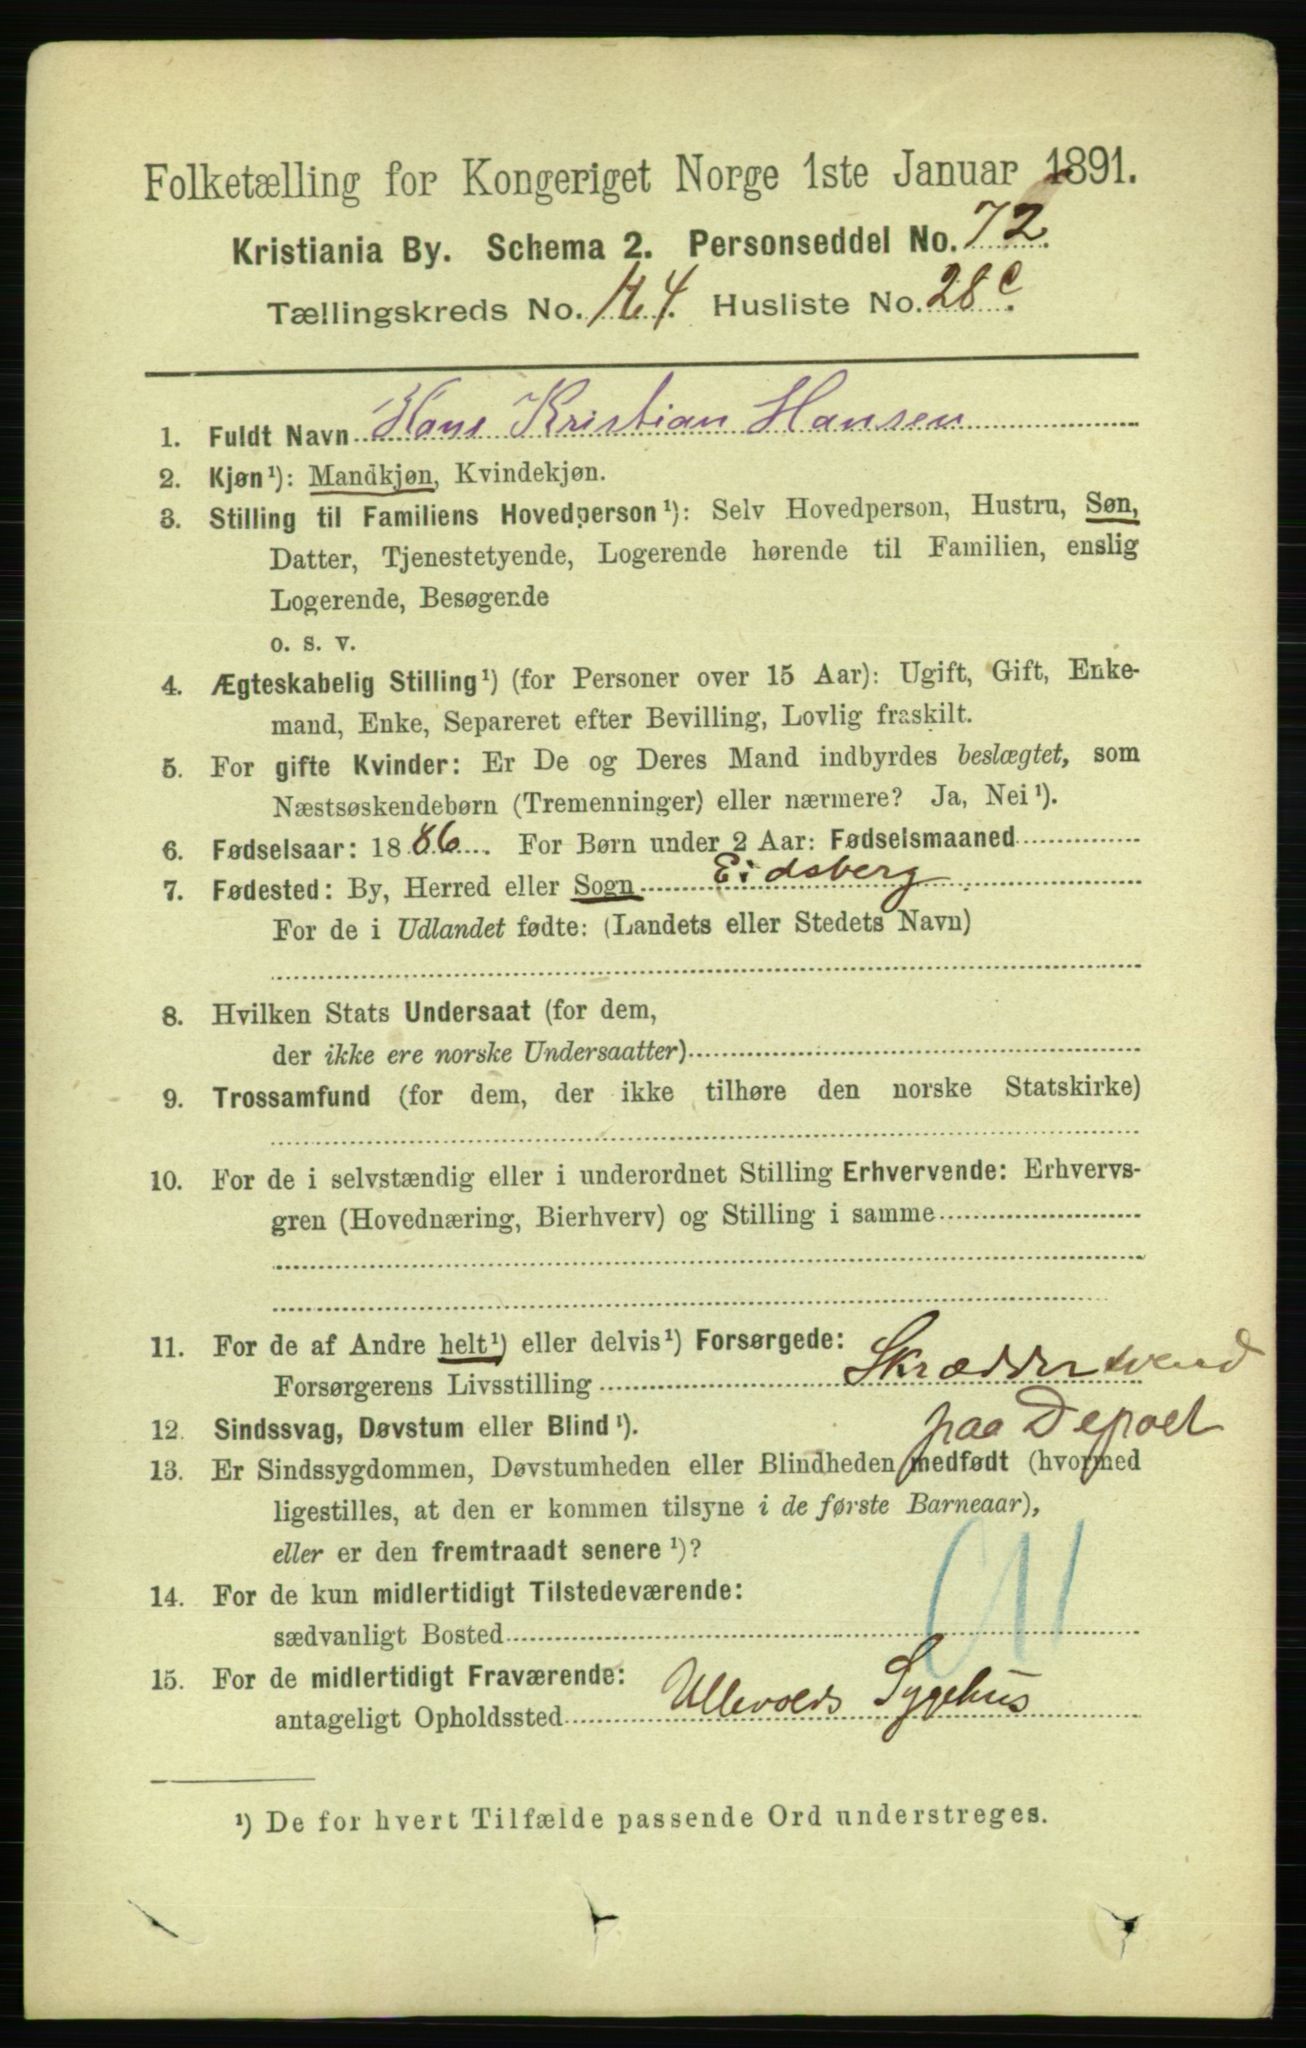 Folketælling for Kongeriget Norge 1ste Januar 1891.
Kristiania By. Schema 2. Personseddel No. 72.
Tællingskreds No. 144. Husliste No. 28 c.
1. Fuldt Navn Hans Kristian Hansen
2. Kjøn¹): Mandkjøn, Kvindekjøn.
3. Stilling til Familiens Hovedperson¹): Selv Hovedperson, Hustru, Søn,
Datter, Tjenestetyende, Logerende hørende til Familien, enslig
Logerende, Besøgende
o. s. v.
4. Ægteskabelig Stilling¹) (for Personer over 15 Aar): Ugift, Gift, Enke-
mand, Enke, Separeret efter Bevilling, Lovlig fraskilt.
5. For gifte Kvinder: Er De og Deres Mand indbyrdes beslægtet, som
Næstsøskendebørn (Tremenninger) eller nærmere? Ja, Nei¹).
6. Fødselsaar: 1886. For Børn under 2 Aar: Fødselsmaaned
7. Fødested: By, Herred eller Sogn Eidsberg
For de i Udlandet fødte: (Landets eller Stedets Navn)
8. Hvilken Stats Undersaat (for dem,
der ikke ere norske Undersaatter)
9. Trossamfund (for dem, der ikke tilhøre den norske Statskirke)
10. For de i selvstændig eller i underordnet Stilling Erhvervende: Erhvervs-
gren (Hovednæring, Bierhverv) og Stilling i samme
11. For de af Andre helt¹) eller delvis¹) Forsørgede:
Forsørgerens Livsstilling Skræddersvend
paa Depoet
12. Sindssvag, Døvstum eller Blind¹).
13. Er Sindssygdommen, Døvstumheden eller Blindheden medfødt (hvormed
ligestilles, at den er kommen tilsyne i de første Barneaar),
eller er den fremtraadt senere¹)?
14. For de kun midlertidigt Tilstedeværende:
sædvanligt Bosted
15. For de midlertidigt Fraværende:
antageligt Opholdssted Ullevolds Sygehus
¹) De for hvert Tilfælde passende Ord understreges.